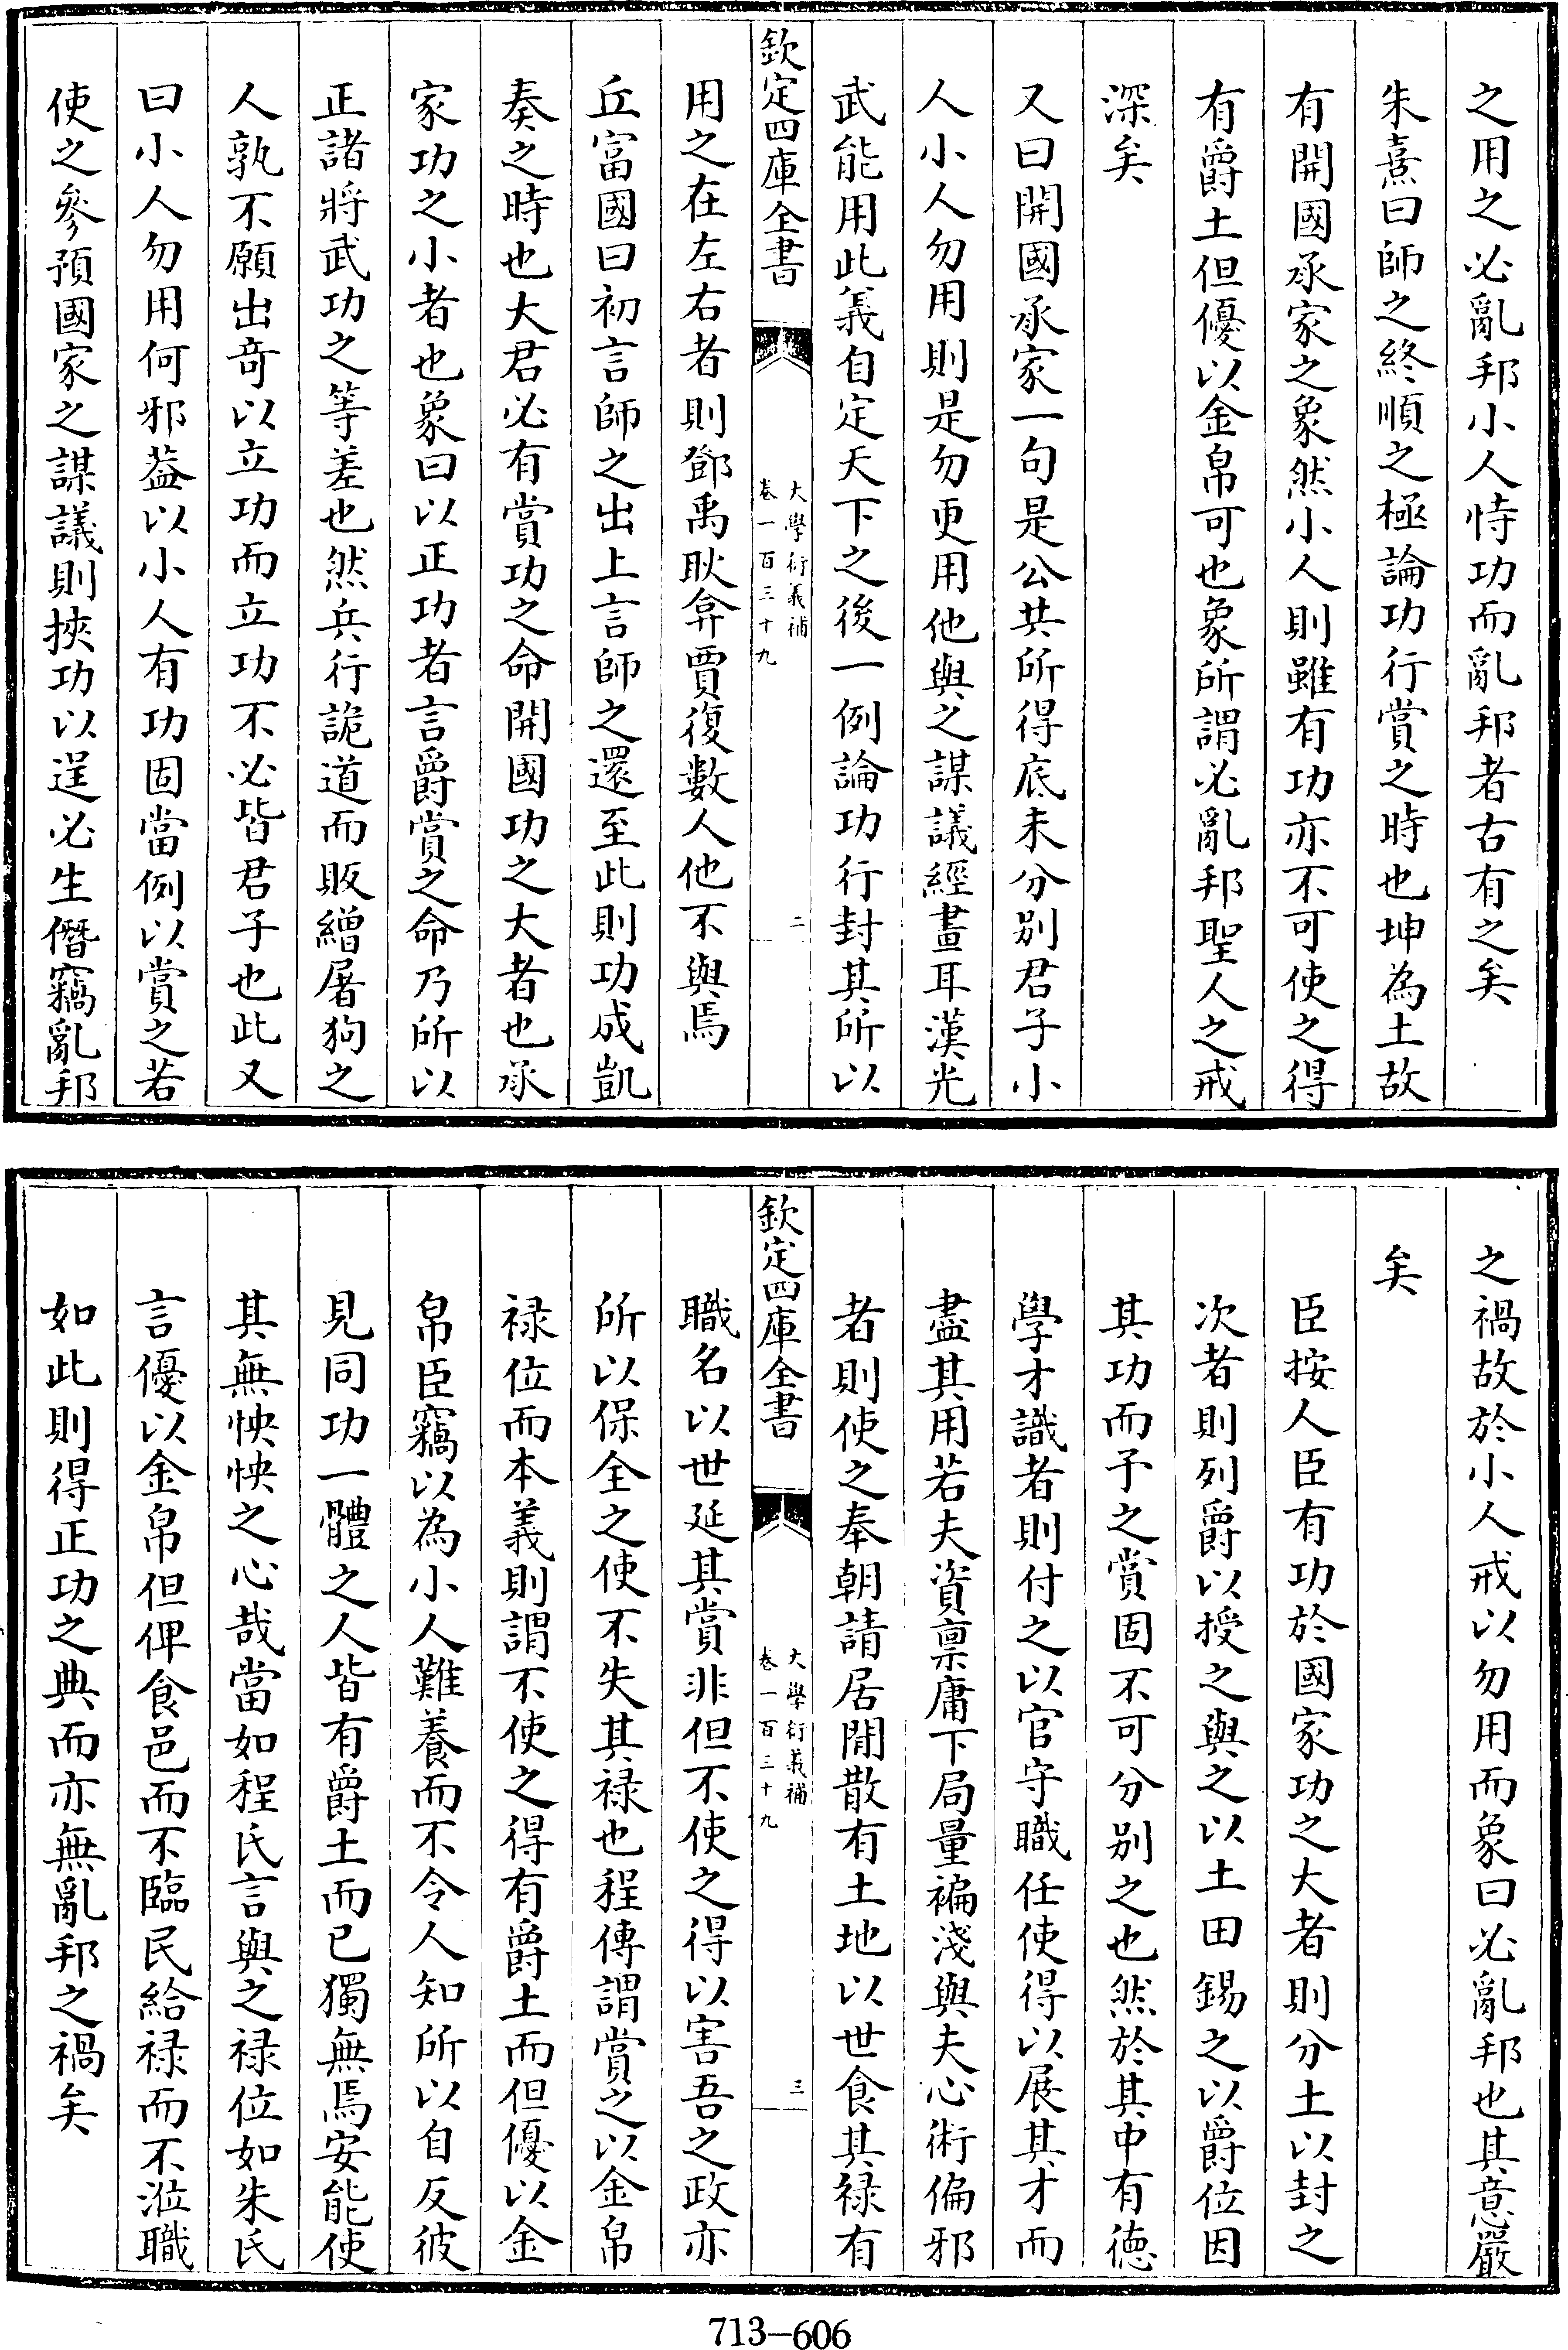 之用之必亂邦小人恃功而亂邦者古有之矣
朱熹曰師之終順之極論功行賞之時也坤為土故
有開國承家之象然小人則雖有功亦不可使之得
有爵土但優以金帛可也象所謂必亂邦聖人之戒
深矣
又曰開國承家一句是公共所得底未分別君子小
人小人勿用則是勿更用他與之謀議經畫耳漢光
武能用此義自定天下之後一例論功行封其所以
欽定四庫全書
大學衍義補
卷一百三十九
二
用之在左右者則鄧禹耿弇賈復數人他不與焉
丘富國曰初言師之出上言師之還至此則功成凱
奏之時也大君必有賞功之命開國功之大者也承
家功之小者也象曰以正功者言爵賞之命乃所以
正諸將武功之等差也然兵行詭道而販繒屠狗之
人孰不願出奇以立功而立功不必皆君子也此又
曰小人勿用何邪葢以小人有功固當例以賞之若
使之參預國家之謀議則挾功以逞必生僭竊亂邦
之禍故於小人戒以勿用而象曰必亂邦也其意嚴
矣
臣按人臣有功於國家功之大者則分土以封之
次者則列爵以授之與之以土田錫之以爵位因
其功而予之賞固不可分別之也然於其中有德
學才識者則付之以官守職任使得以展其才而
盡其用若夫資禀庸下局量褊淺與夫心術偏邪
者則使之奉朝請居閒散有土地以世食其祿有
欽定四庫全書
大學衍義補
卷一百三十九
三
職名以世延其賞非但不使之得以害吾之政亦
所以保全之使不失其祿也程傳謂賞之以金帛
祿位而本義則謂不使之得有爵土而但優以金
帛臣竊以為小人難養而不令人知所以自反彼
見同功一體之人皆有爵土而已獨無焉安能使
其無怏怏之心哉當如程氏言與之祿位如朱氏
言優以金帛但俾食邑而不臨民給祿而不涖職
如此則得正功之典而亦無亂邦之禍矣
713-606